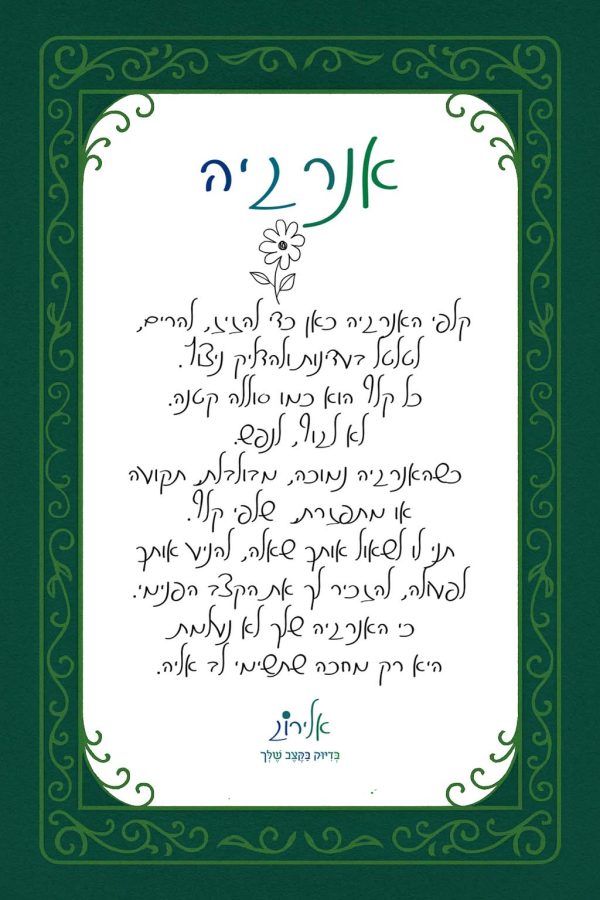 אנרגיה
קלפי האנרגיה כאן כדי להזיז, להרים,
לטלטל בעדנות ולהדליק ניצוץ.
כל קלף הוא כמו סוללה קטנה.
לא לגוף, לנפש.
כשהאנרגיה נמוכה, מבולבלת, תקועה
או מתפזרת, שלפי קלף.
תני לו לשאול אותך שאלה, להניע אותך
לפעולה, להזכיר לך את הקצב הפנימי.
כי האנרגיה שלך לא נעלמת
היא רק מחכה שתשימי לב אליה.
אלירוז
בְּדִיּוּק בַּקֶּצֶב שֶׁלָּךְ